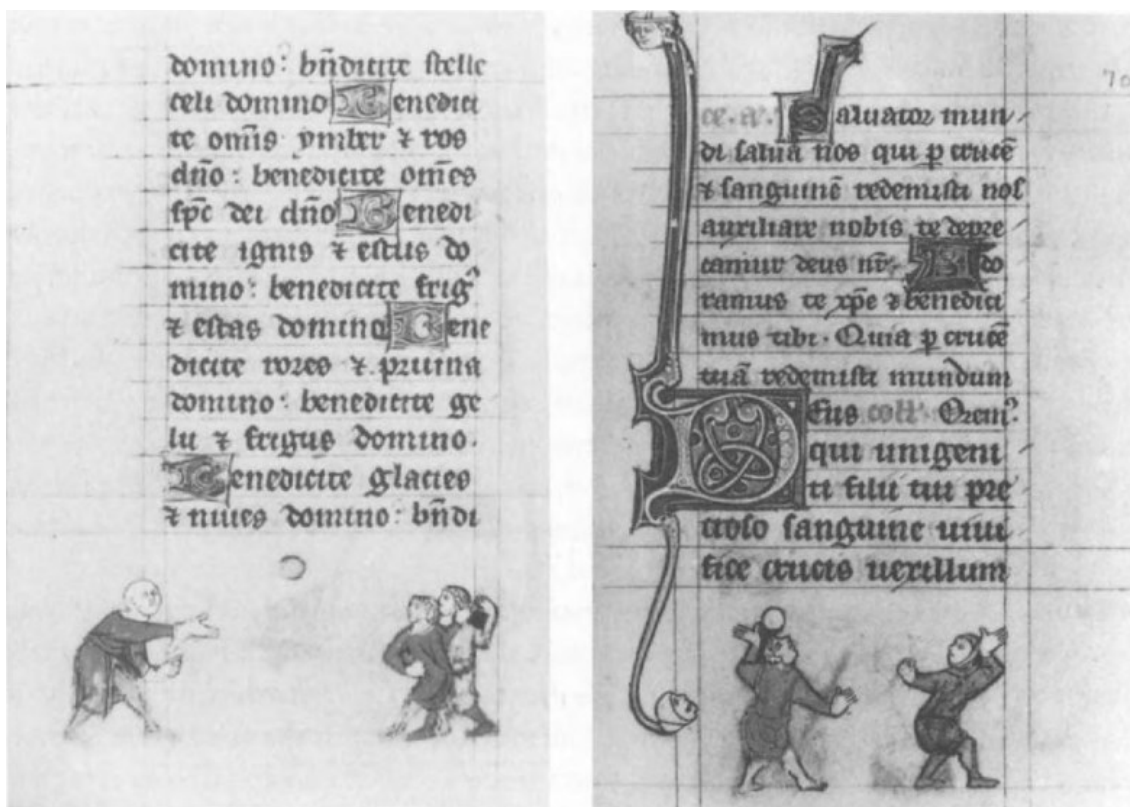 domino: bn̄dicite stelle
celi domino Benedici
te om̄is ymber ⁊ ros
dn̄o: benedicite om̄es
sp̄c dei dn̄o Benedi
cite ignis ⁊ estus do
mino: benedicite frig᷒
⁊ estas domino Bene
dicite rores ⁊ pruina
domino: benedicite ge
lu ⁊ frigus domino.
Benedicite glacies
⁊ niues domino: bn̄di
70
Saluator mun
di salua nos qui p crucē
⁊ sanguinē redemisti nos
auxiliare nobis te depre
camur deus nr̄. Ado
ramus te xp̄e ⁊ benedici
mus tibi. Quia p crucē
tuā redemisti mundum
Deus coll' Orem᷒.
qui unigeni
ti filii tui pre
cioso sanguine uiui
fice crucis uexillum